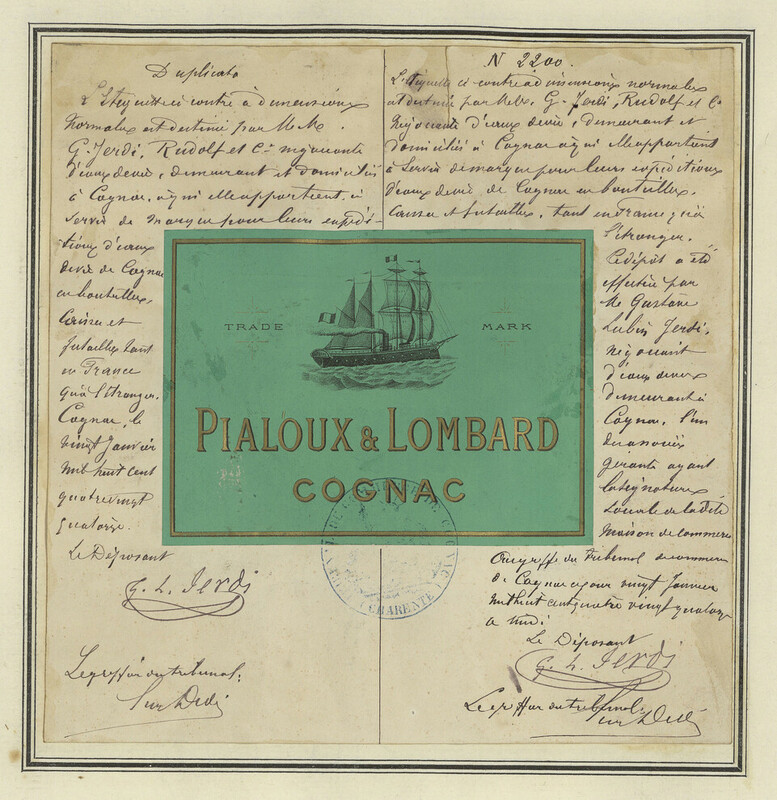 Duplicata
L'étiquette ci contre à dimensions
normales est destinée par M. M.
G. Jerdi, Rudolf et Cie négociants
d'eaux de vie, demeurant et domiciliés
à Cognac, à qui elle appartient, à
servir de marque pour leurs expédi-
tions d'eaux
de vie de Cognac
en bouteilles,
caisses et
futailles tant
en France
qu'à l'étranger.
Cognac, le
vingt Janvier
mil huit cent
quatre vingt
quatorze.
Le Déposant
G. L. Jerdi
Le greffier du tribunal:
N 2200.
L'étiquette ci contre à dimensions normales
est destinée par MM. G. Jerdi, Rudolf et Cie
négociants d'eaux de vie, demeurant et
domiciliés à Cognac à qui elle appartient
à servir de marque pour leurs expéditions
d'eaux de vie de Cognac en bouteilles,
caisses et futailles, tant en France qu'à
l'étranger.
Le dépôt a été
effectué par
Mr Gustave
Lubin Jerdi,
négociant
d'eaux de vie
demeurant à
Cognac, l'un
des associés
gérants ayant
la signature
sociale de la dite
maison de commerce
Au greffe du Tribunal de commerce
de Cognac ce jour vingt Janvier
mil huit cent quatre vingt quatorze
à midi
Le Déposant
G. L. Jerdi
Le greffier du tribunal:
TRADE MARK
PIALOUX & LOMBARD
COGNAC
CHARENTE